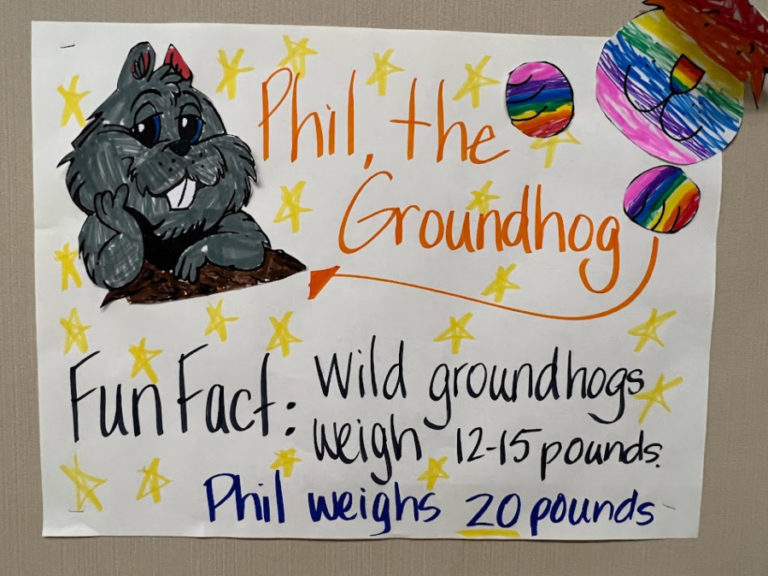 Phil, the
Groundhog
Fun Fact: Wild groundhogs
weigh 12-15 pounds.
Phil weighs 20 pounds